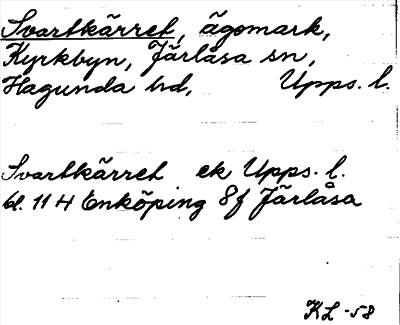 Svartkärret, ägomark,
Kyrkbyn, Järlåsa sn,
Hagunda hd, Upps. l.
Svartkärret ek Upps. l.
bl. 114 Enköping 8f Järlåsa
KL -58